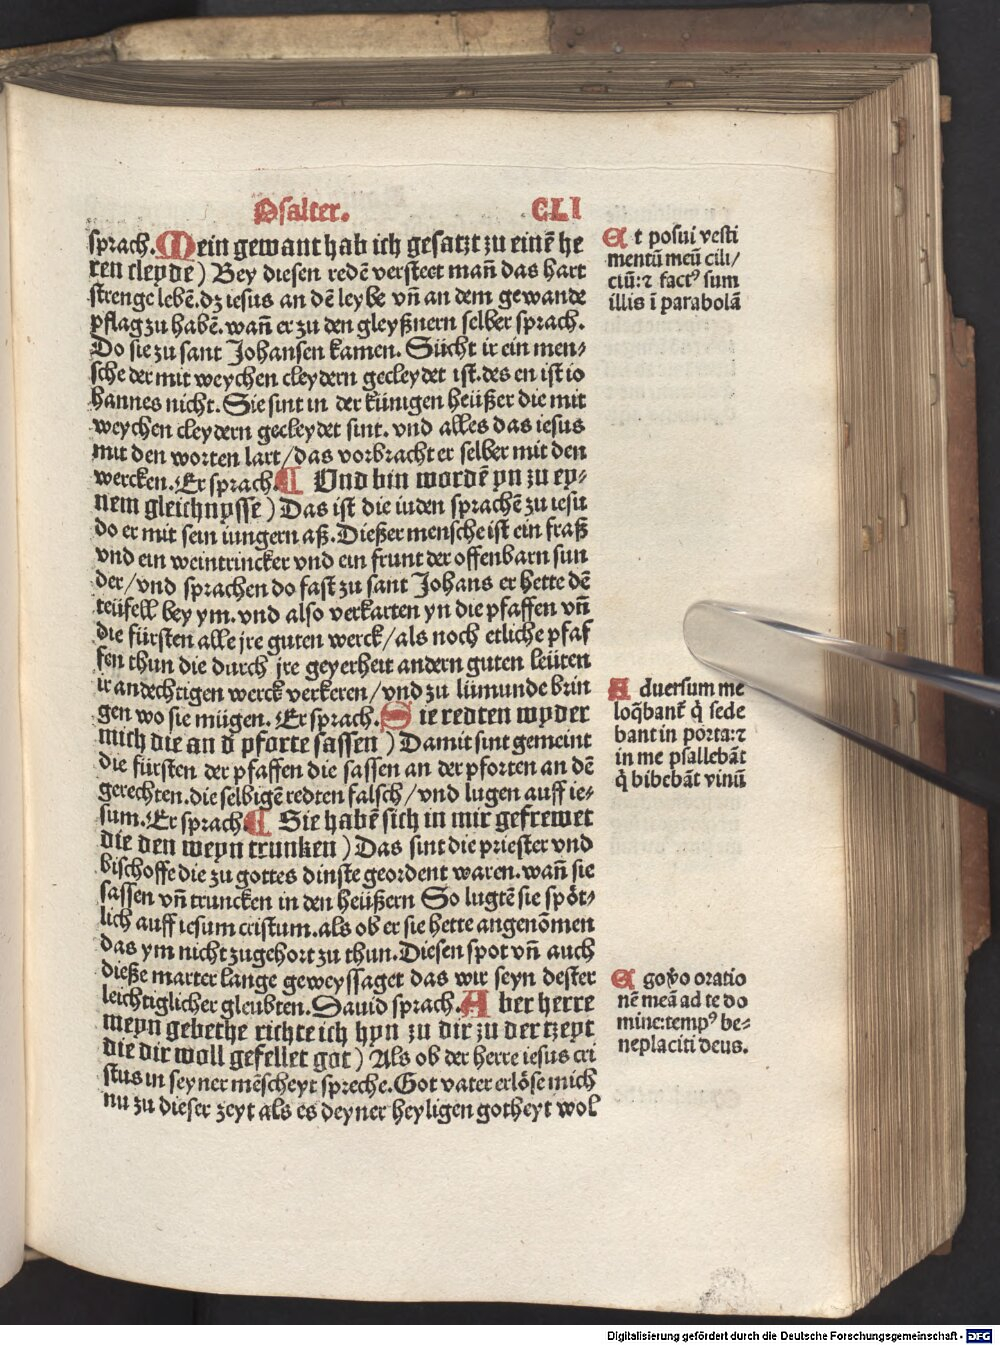 Psalter. CLI
sprach. Mein gewant hab ich gesatzt zu einē he
ren cleyde) Bey diesen redē versteet man̄ das hart
strenge lebē. dz iesus an dē leybe vn̄ an dem gewande
pflag zu habē. wan̄ er zu den gleyßnern selber sprach.
Do sie zu sant Johansen kamen. Sücht ir ein men⸗
sche der mit weychen cleydern gecleydet ist. des en ist io
hannes nicht. Sie sint in der künigen heüßer die mit
weychen cleydern gecleydet sint. vnd alles das iesus
mit den worten lart/das vorbracht er selber mit den
wercken. Er sprach. ¶ Vnd bin wordē yn zu ey⸗
nem gleichnysse) Das ist die iuden sprachē zu iesu
do er mit sein iungern aß. Dießer mensche ist ein fraß
vnd ein weintrincker vnd ein frunt der offenbarn sun
der/vnd sprachen do fast zu sant Johans er hette dē
teüfell bey ym. vnd also verkarten yn die pfaffen vn̄
die fürsten alle jre guten werck/als noch etliche pfaf
fen thun die durch jre geyerheit andern guten leüten
ir andechtigen werck verkeren/vnd zu lümunde brin
gen wo sie mügen. Er sprach. Sie redten wyder
mich die an d̄ pforte sassen) Damit sint gemeint
die fürsten der pfaffen die sassen an der pforten an dē
gerechten. die selbigē redten falsch/vnd lugen auff ie⸗
sum. Er sprach. ¶ Sie habē sich in mir gefrewet
die den weyn trunken) Das sint die priester vnd
bischoffe die zu gottes dinste geordent waren. wan̄ sie
sassen vn̄ truncken in den heüßern So lugtē sie spöt⸗
lich auff iesum cristum. als ob er sie hette angenōmen
das ym nicht zugehort zu thun. Diesen spot vn̄ auch
dieße marter lange geweyssaget das wir seyn dester
leichtiglicher gleubten. Dauid sprach. Aber herre
meyn gebethe richte ich hyn zu dir zu der tzeyt
die dir woll gefellet got) Als ob der herre iesus cri
stus in seyner mēscheyt spreche. Got vater erlöse mich
nu zu dieser zeyt als es deyner heyligen gotheyt wol
Et posui vesti
mentū meū cili/
ciū: ⁊ factꝰ sum
illis ī parabolā
Aduersum me
loq̄banť q̄ sede
bant in porta: ⁊
in me psallebāt
q̄ bibebāt vinū
Ego v̊o oratio
nē meā ad te do
mine: tempꝰ be⸗
neplaciti deus.
Digitalisierung gefördert durch die Deutsche Forschungsgemeinschaft - DFG